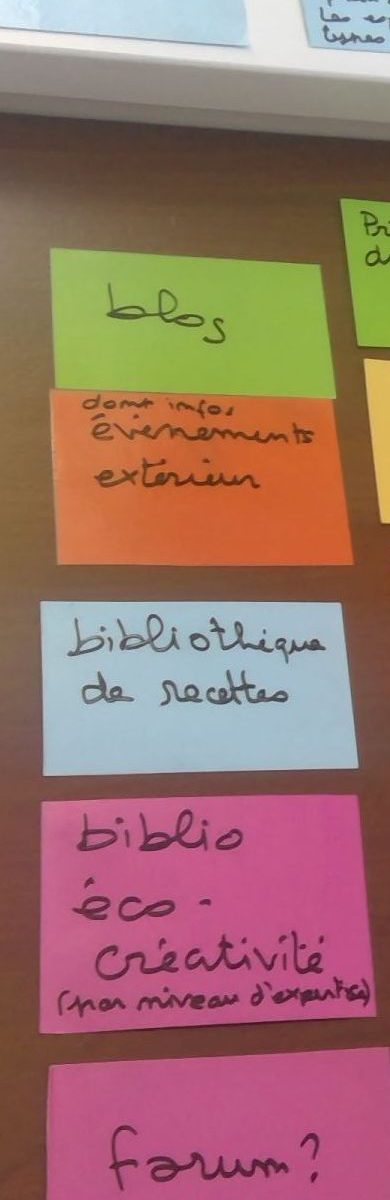 Les
types
Pr
d
blog
dont infos
évènements
extérieur
bibliothèque
de recettes
biblio
éco-
créativité
(par niveau d'expertise)
forum?